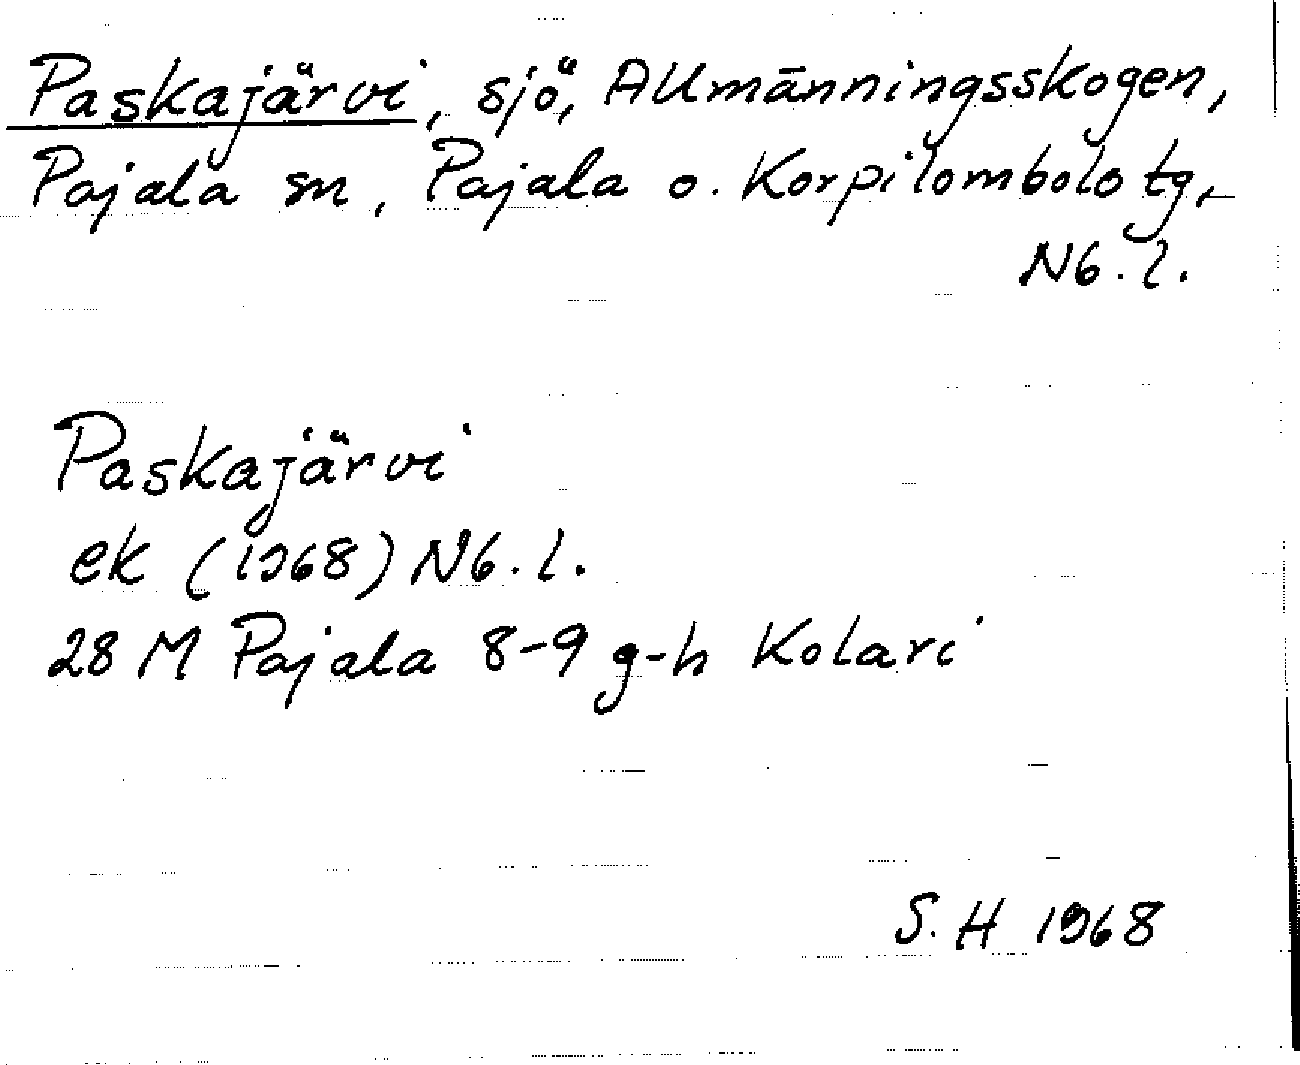 Paskajärvi, sjö, Allmänningsskogen,
Pajala sn, Pajala o. Korpilombolo tg,
Nb. l.
Paskajärvi
ek (1968) Nb. l.
28 M Pajala 8-9 g-h Kolari
S. H 1968